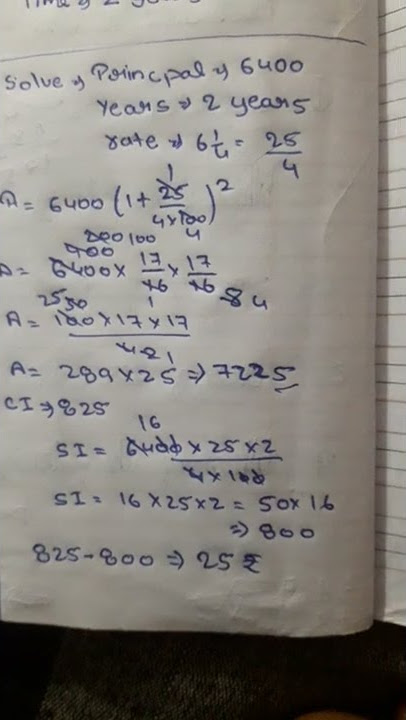 Solve → Princpal → 6400
Years → 2 years
rate → 6 1/4 = 25/4
A = 6400 (1 + 25/(4×100))²
A = 6400 × 17/16 × 17/16
A = 100 × 17 × 17 / 4
A = 289 × 25 ⇒ 7225
CI → 825
SI = 6400 × 25 × 2 / (4 × 100)
SI = 16 × 25 × 2 = 50 × 16
⇒ 800
825 - 800 ⇒ 25 ₹